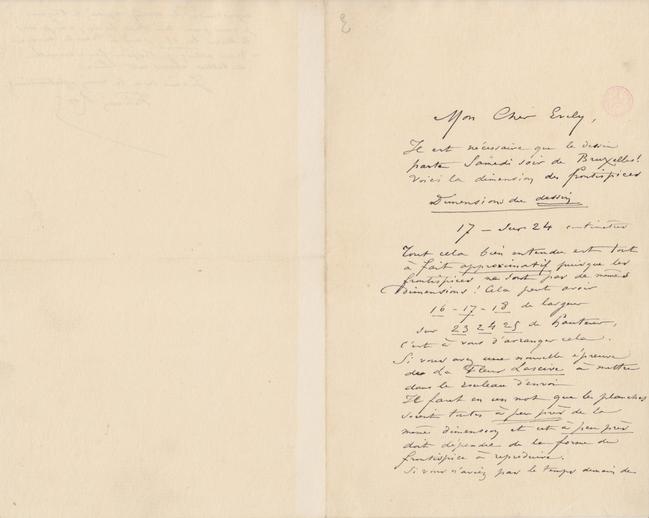 Mon Cher Evely,
Il est nécessaire que le dessin
parte Samedi soir de Bruxelles!
Voici la dimension des frontispices
Dimensions du dessin
17 – sur 24 centimètres
Tout cela bien entendu est tout
à fait approximatif puisque les
frontispices ne sont pas de mêmes
dimensions! Cela peut avoir
16 - 17 - 18 de largeur
sur 23 24 25 de hauteur,
c'est à vous d'arranger cela.
Si vous avez une nouvelle épreuve
de La Fleur Lascive à mettre
dans le rouleau d'envoi
Il faut en un mot que les planches
soient toutes à peu près de la
même dimension et cet à peu près
doit dépendre de la forme du
frontispice à reproduire.
Si vous n'aviez pas le temps demain de